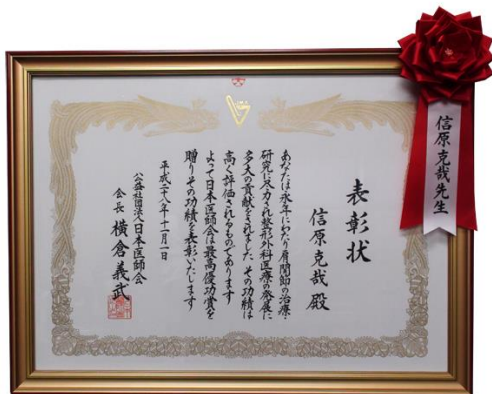 表彰状
信原克哉殿
あなたは永年にわたり肩関節の治療・
研究に尽力され整形外科医療の発展に
多大の貢献をされました その功績は
高く評価されるものであります
よって日本医師会は最高優功賞を
贈りその功績を表彰いたします
平成二十八年十一月一日
公益社団法人日本医師会
会長 横倉義武
信原克哉先生